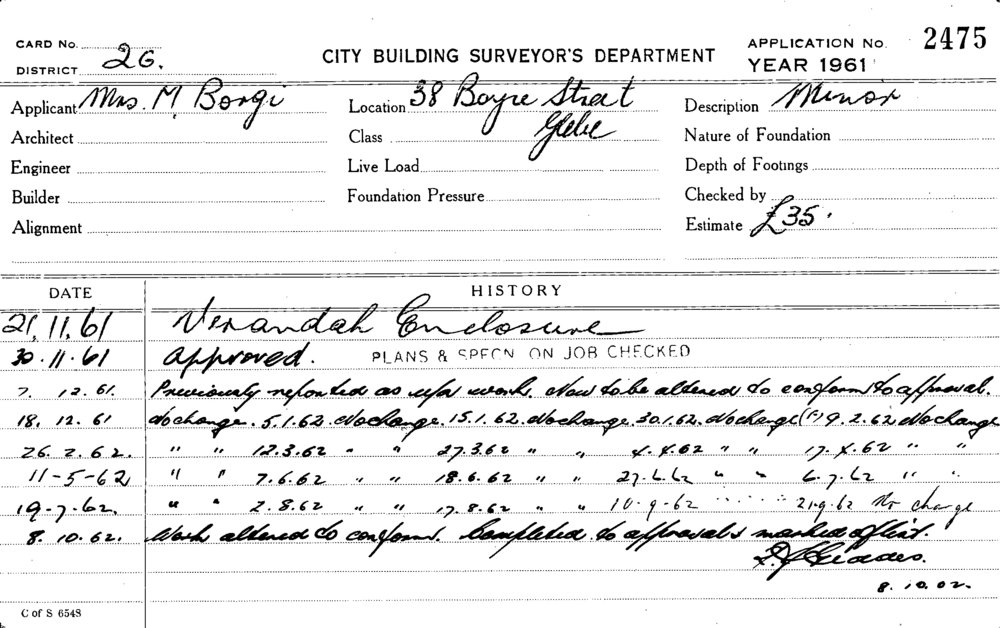 CARD No.
DISTRICT 26.
CITY BUILDING SURVEYOR'S DEPARTMENT
APPLICATION No. 2475
YEAR 1961
Applicant Mrs. M. Borgi
Location 38 Boyce Street
Glebe
Description Minor
Architect
Class
Nature of Foundation
Engineer
Live Load
Depth of Footings
Builder
Foundation Pressure
Checked by
Alignment
Estimate £35.
DATE HISTORY
21.11.61 Verandah Enclosure
30.11.61 Approved. PLANS & SPECN. ON JOB CHECKED
7. 12.61. Previously reported as work. Now to be altered to conform to approval.
18. 12. 61 No change. 5.1.62. No change. 15.1.62. No change. 30.1.62. No change 9.2.62 No change
26. 2. 62. " " 12.3.62 " " 27.3.62 " " 4.4.62 " " 17.4.62 " "
11-5-62 " " 7.6.62 " " 18.6.62 " " 27.6.62 " " 6.7.62 " "
19-7-62. " " 2.8.62 " " 17.8.62 " " 10-9-62 " " 21.9.62 No change
8.10.62. Work altered to conform. Completed to approval & marked off list.
8.10.62.
C of S 6548